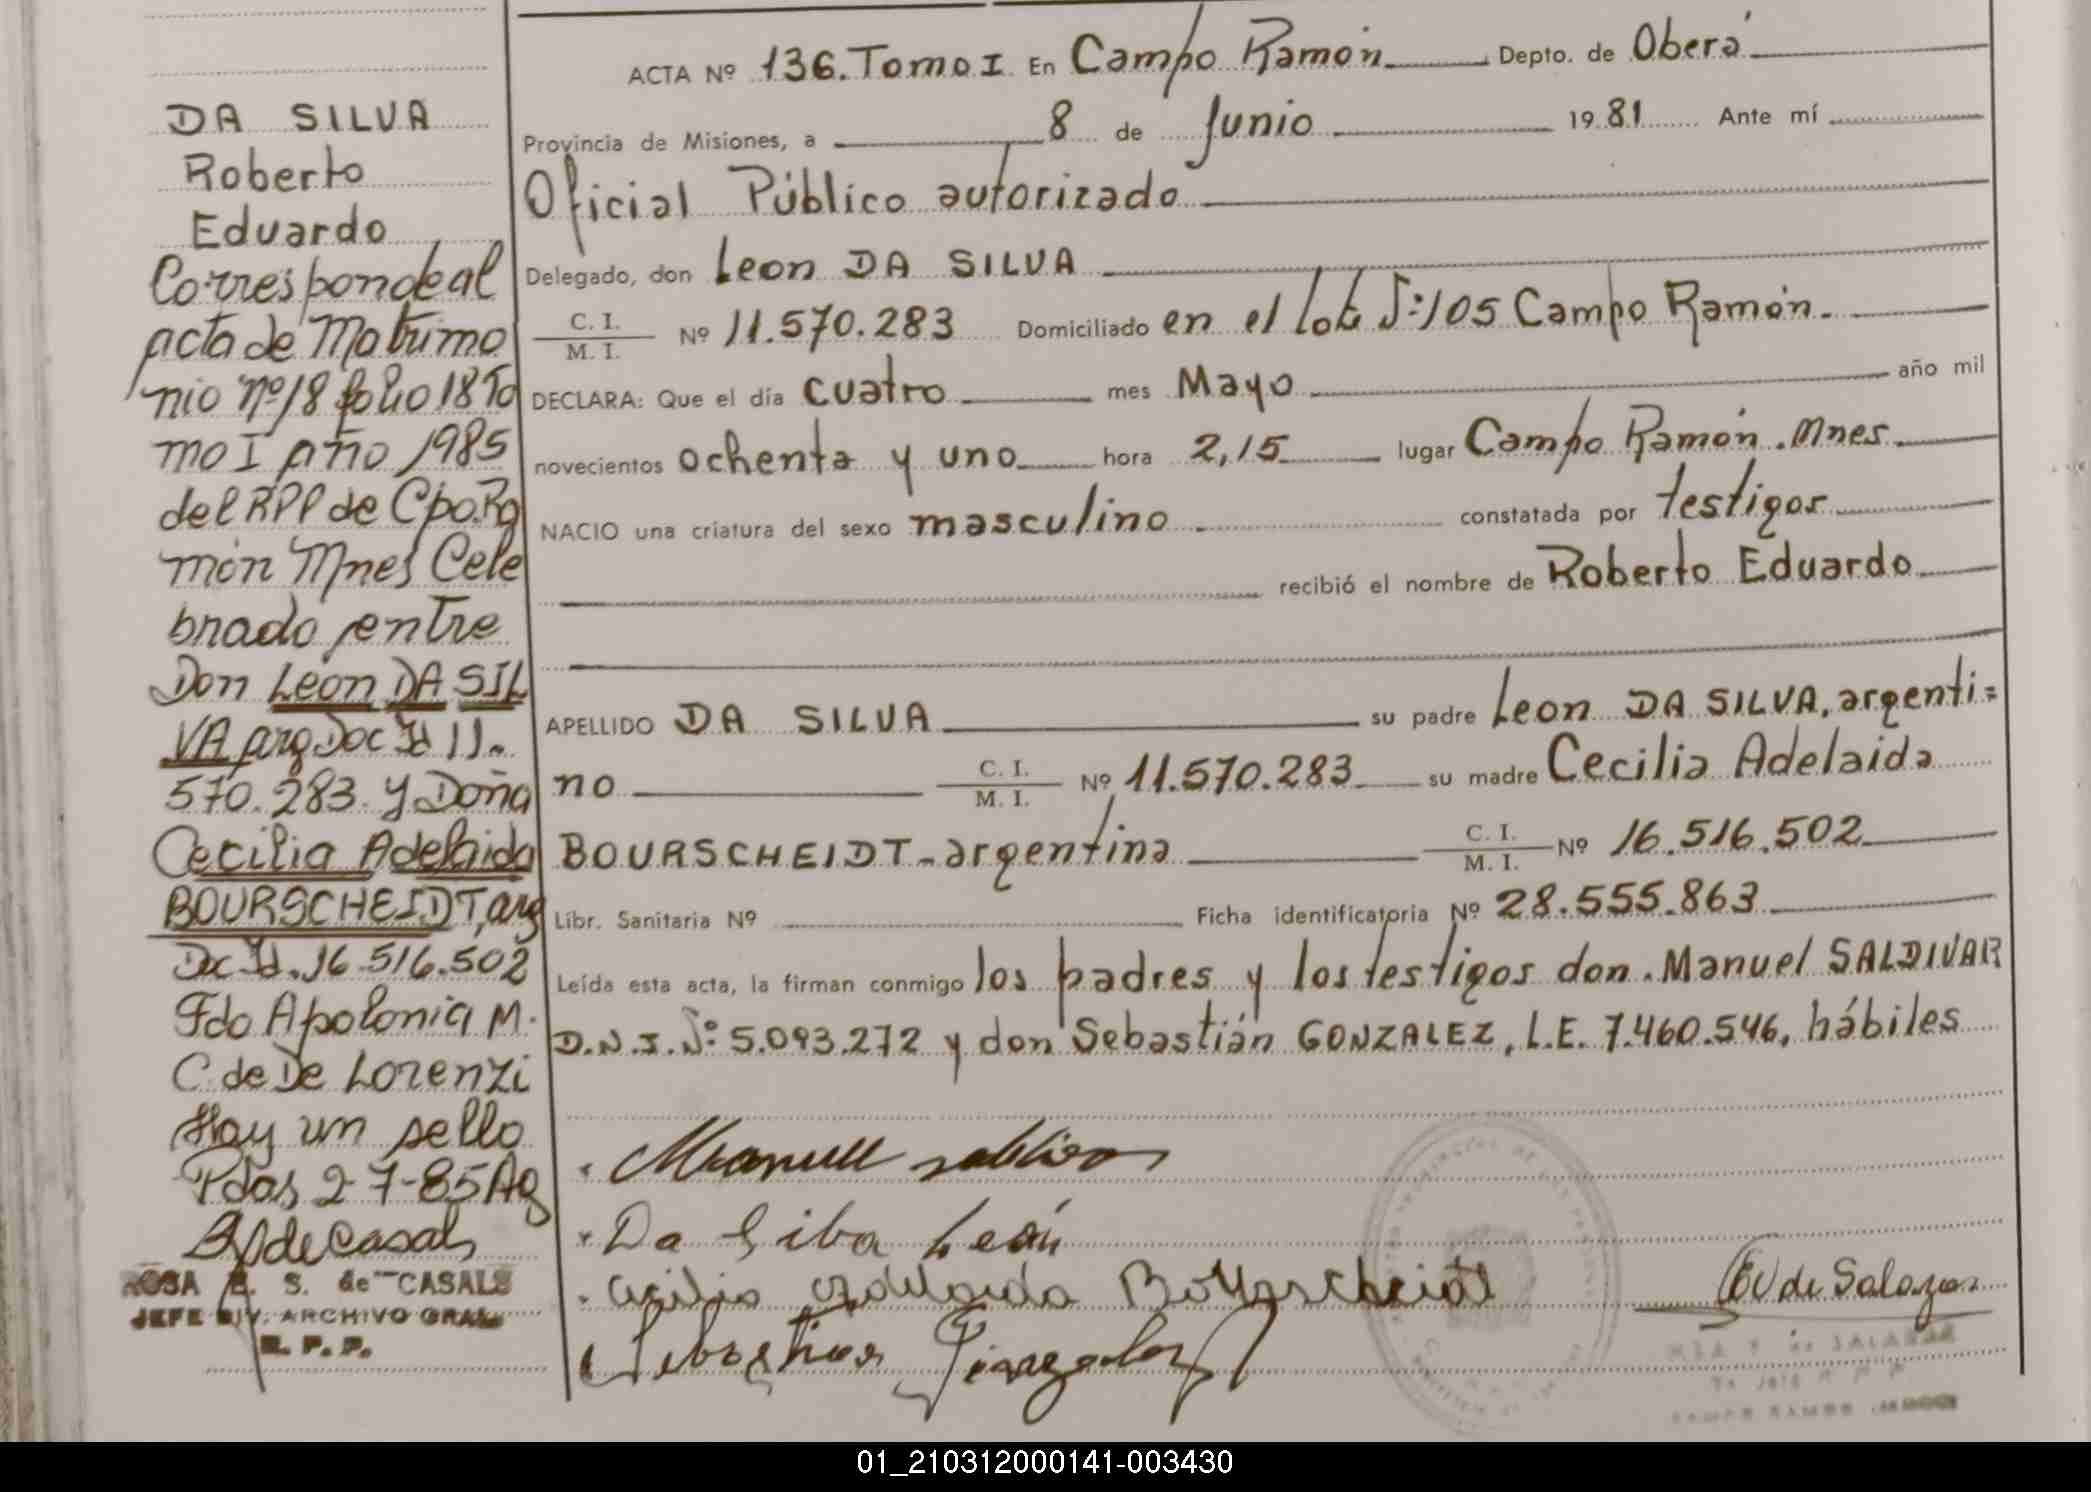 DA SILVA
Roberto
Eduardo
Corresponde al
acta de Matrimo
nio nº 18 folio 18 To
mo I año 1985
del RPP de Cpo. Ra
món Mnes Cele
brado entre
Don León DA SIL
VA arg Doc Id 11.
570.283 y Doña
Cecilia Adelaida
BOURSCHEIDT, arg
Doc Id. 16.516.502
Fdo Apolonia M.
C. de De Lorenzi
Hay un sello
Pdas 2-7-85 Ag
de Casals
ROSA E. S. de CASALS
JEFE DIV. ARCHIVO GRAL.
R. P. P.
ACTA Nº 136. Tomo I En Campo Ramón Depto. de Oberá
Provincia de Misiones, a 8 de Junio 1981 Ante mí
Oficial Público autorizado
Delegado, don Leon DA SILVA
C. I. / M. I. Nº 11.570.283 Domiciliado en el lote Nº: 105 Campo Ramón.
DECLARA: Que el día cuatro mes Mayo año mil
novecientos ochenta y uno hora 2,15 lugar Campo Ramón. Mnes.
NACIO una criatura del sexo masculino constatada por testigos
recibió el nombre de Roberto Eduardo
APELLIDO DA SILVA su padre Leon DA SILVA, argenti=
no C. I. / M. I. Nº 11.570.283 su madre Cecilia Adelaida
BOURSCHEIDT - argentina C. I. / M. I. Nº 16.516.502
Libr. Sanitaria Nº Ficha identificatoria Nº 28.555.863
Leída esta acta, la firman conmigo los padres y los testigos don. Manuel SALDIVAR
D.N.I. Nº: 5.093.272 y don Sebastián GONZALEZ, L.E. 7.460.546, hábiles
Manuel
Da Silva León
Cecilia Adelaida Bourscheidt
EV de Salazar
Sebastian Gonzalez
01_210312000141-003430